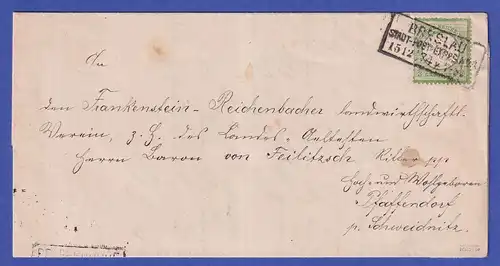 BRESLAU
STADT-POST-EXPED.
15 12
An
den Frankenstein-Reichenbacher landwirthschaftl.
Verein, z. H. des Landes-Aeltesten
Herrn Baron von Feilitzsch Ritter pp
Hoch- und Wohlgeboren
Pfaffendorf
p. Schweidnitz.